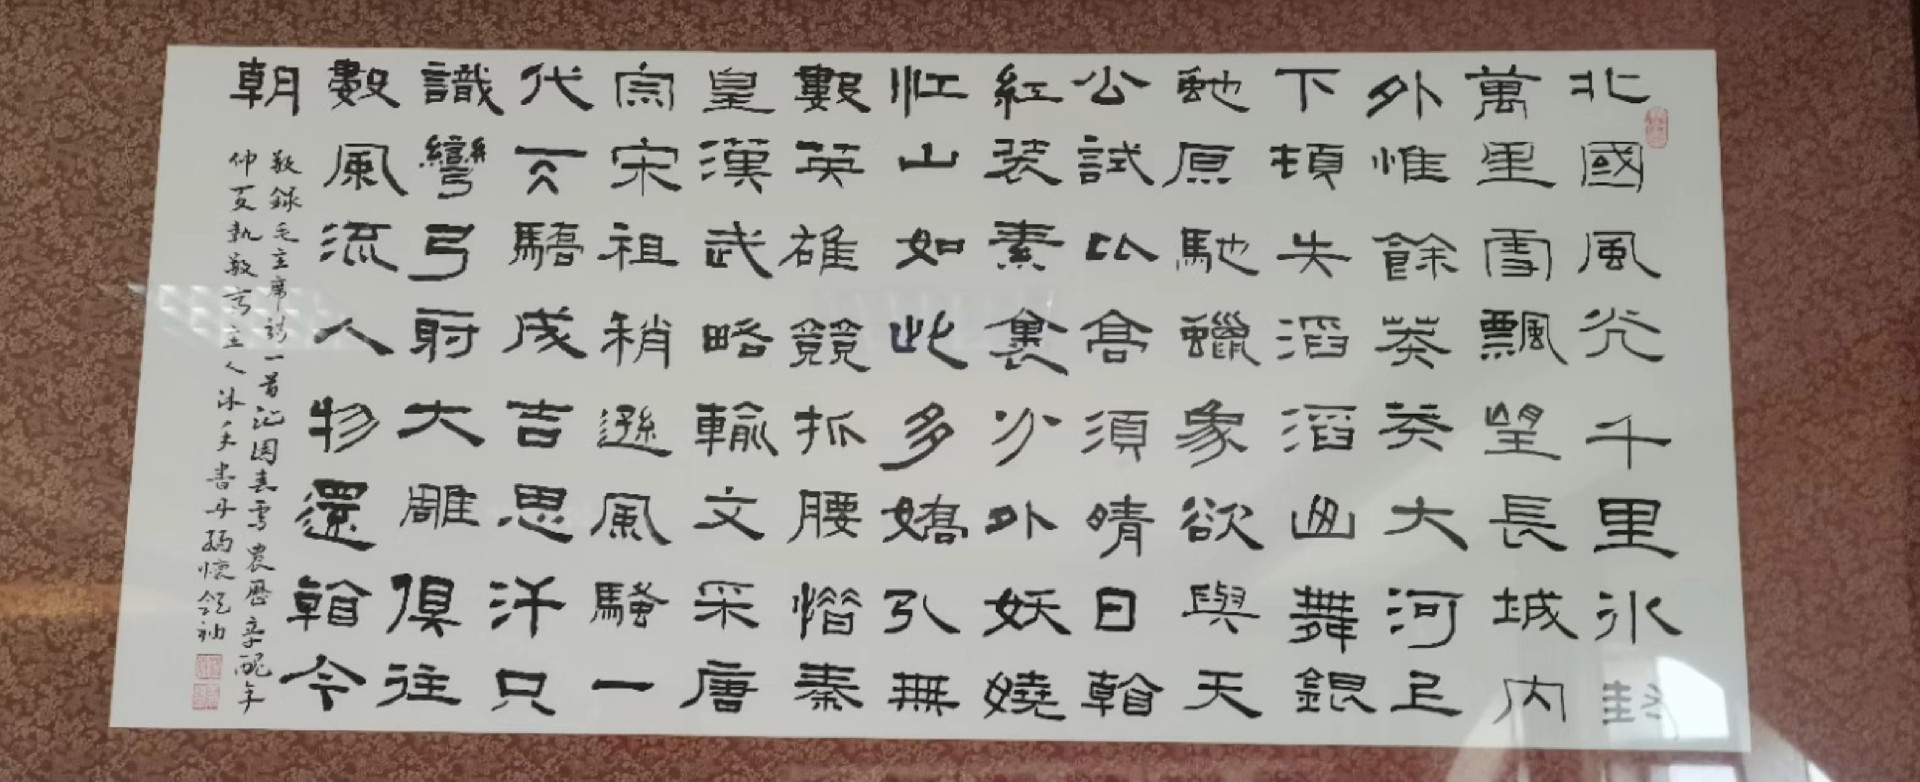 北國風光千里冰封
萬里雪飄望長城內
外惟餘莽莽大河上
下頓失滔滔山舞銀
蛇原馳蠟象欲與天
公試比高須晴日看
紅裝素裹分外妖嬈
江山如此多嬌引無
數英雄競折腰惜秦
皇漢武略輸文采唐
宗宋祖稍遜風騷一
代天驕成吉思汗只
識彎弓射大雕俱往
數風流人物還看今
朝
敬錄毛主席詩一首沁園春雪農歷辛醜年
仲夏執敬齋主人冰書丹緬懷領袖